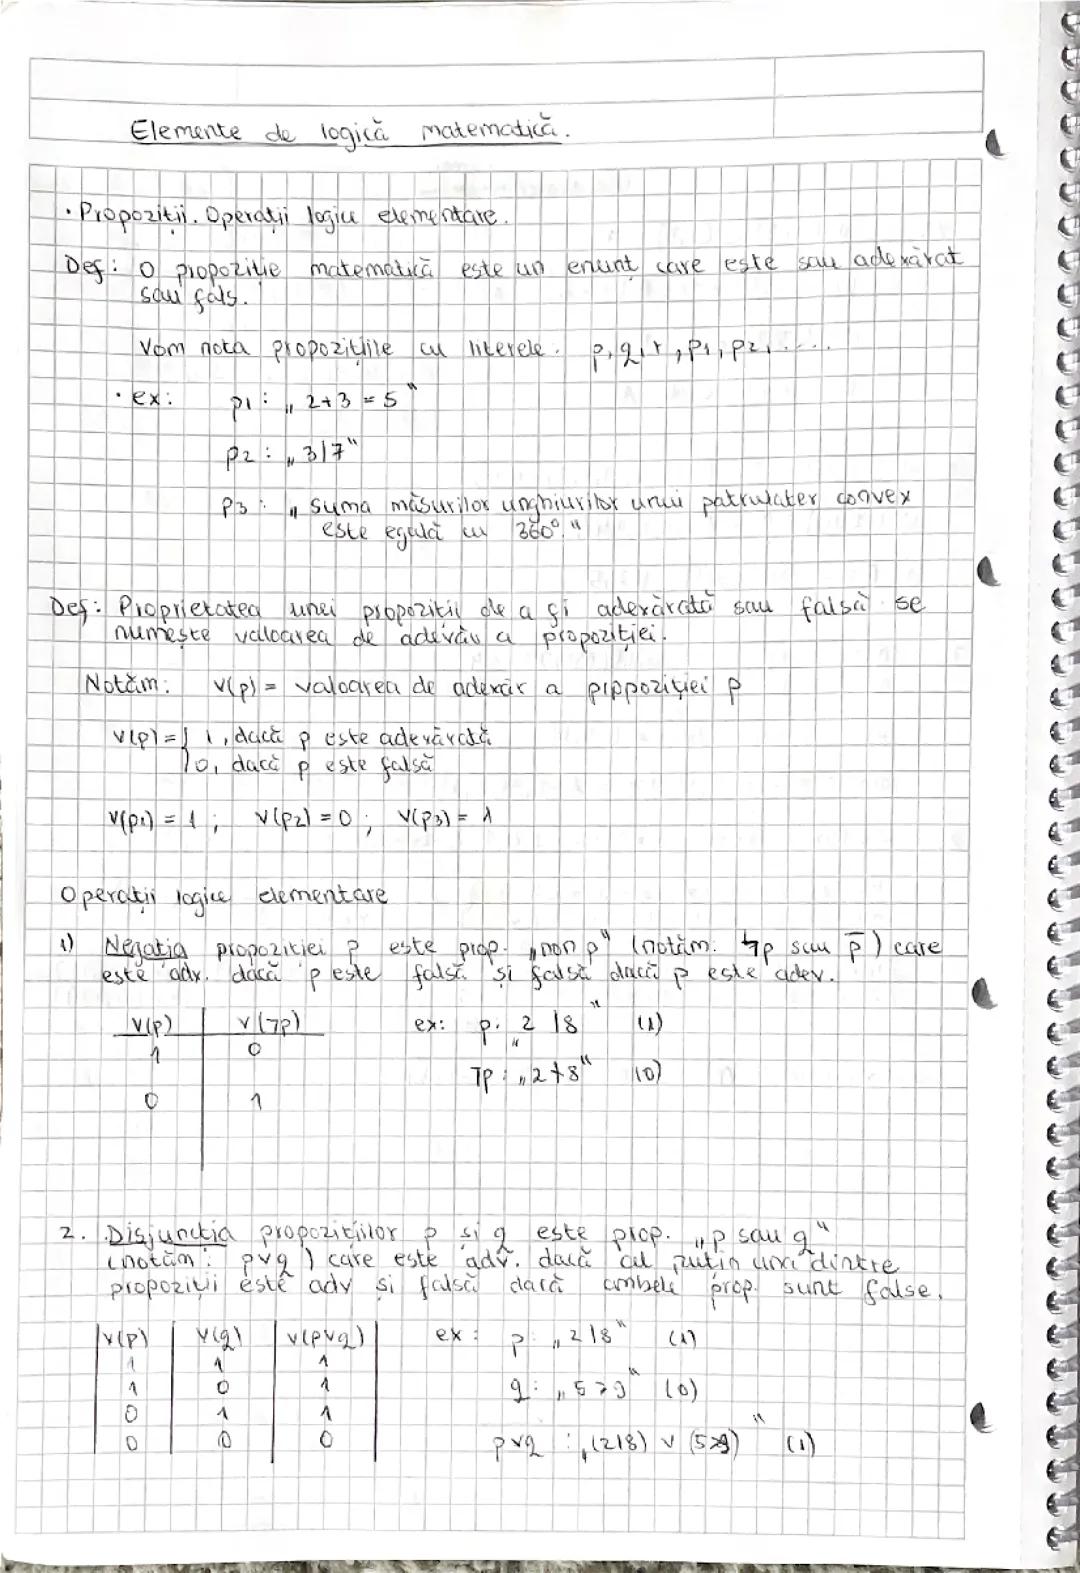 Elemente de logică matematică.
• Propoziții. Operații logice elementare.
Def: O propoziție matematică este un enunț care este sau adevărat
sau fals.
Vom nota propozițiile cu literele. p, q, r, p1, p2, ....
• ex: p1: „2+3=5"
p2: „3|7"
p3: „suma măsurilor unghiurilor unui patrulater convex
este egală cu 360°."
Def: Proprietatea unei propoziții de a fi adevărată sau falsă se
numește valoarea de adevăr a propoziției.
Notăm: v(p) = valoarea de adevăr a pippoziției p
v(p) = { 1, dacă p este adevărată
0, dacă p este falsă
v(p1) = 1; v(p2) = 0; v(p3) = 1
Operații logice elementare
1) Negația propoziției p este prop. „non p" (notăm: ⌉p sau p̅) care
este adv. dacă p este falsă și falsă dacă p este adev.
v(p) v(⌉p) ex: p. „2|8" (1)
1 0
⌉p: „2∤8" (0)
0 1
2. Disjuncția propozițiilor p și q este prop. „p sau q"
(notăm: p∨q) care este adv. dacă cel puțin una dintre
propoziții este adv și falsă dacă ambele prop. sunt false.
v(p) v(q) v(p∨q) ex: p: „2|8" (1)
1 1 1
1 0 1 q: „5>9" (0)
0 1 1
0 0 0 p∨q: „(2|8) ∨ (5>9)" (1)